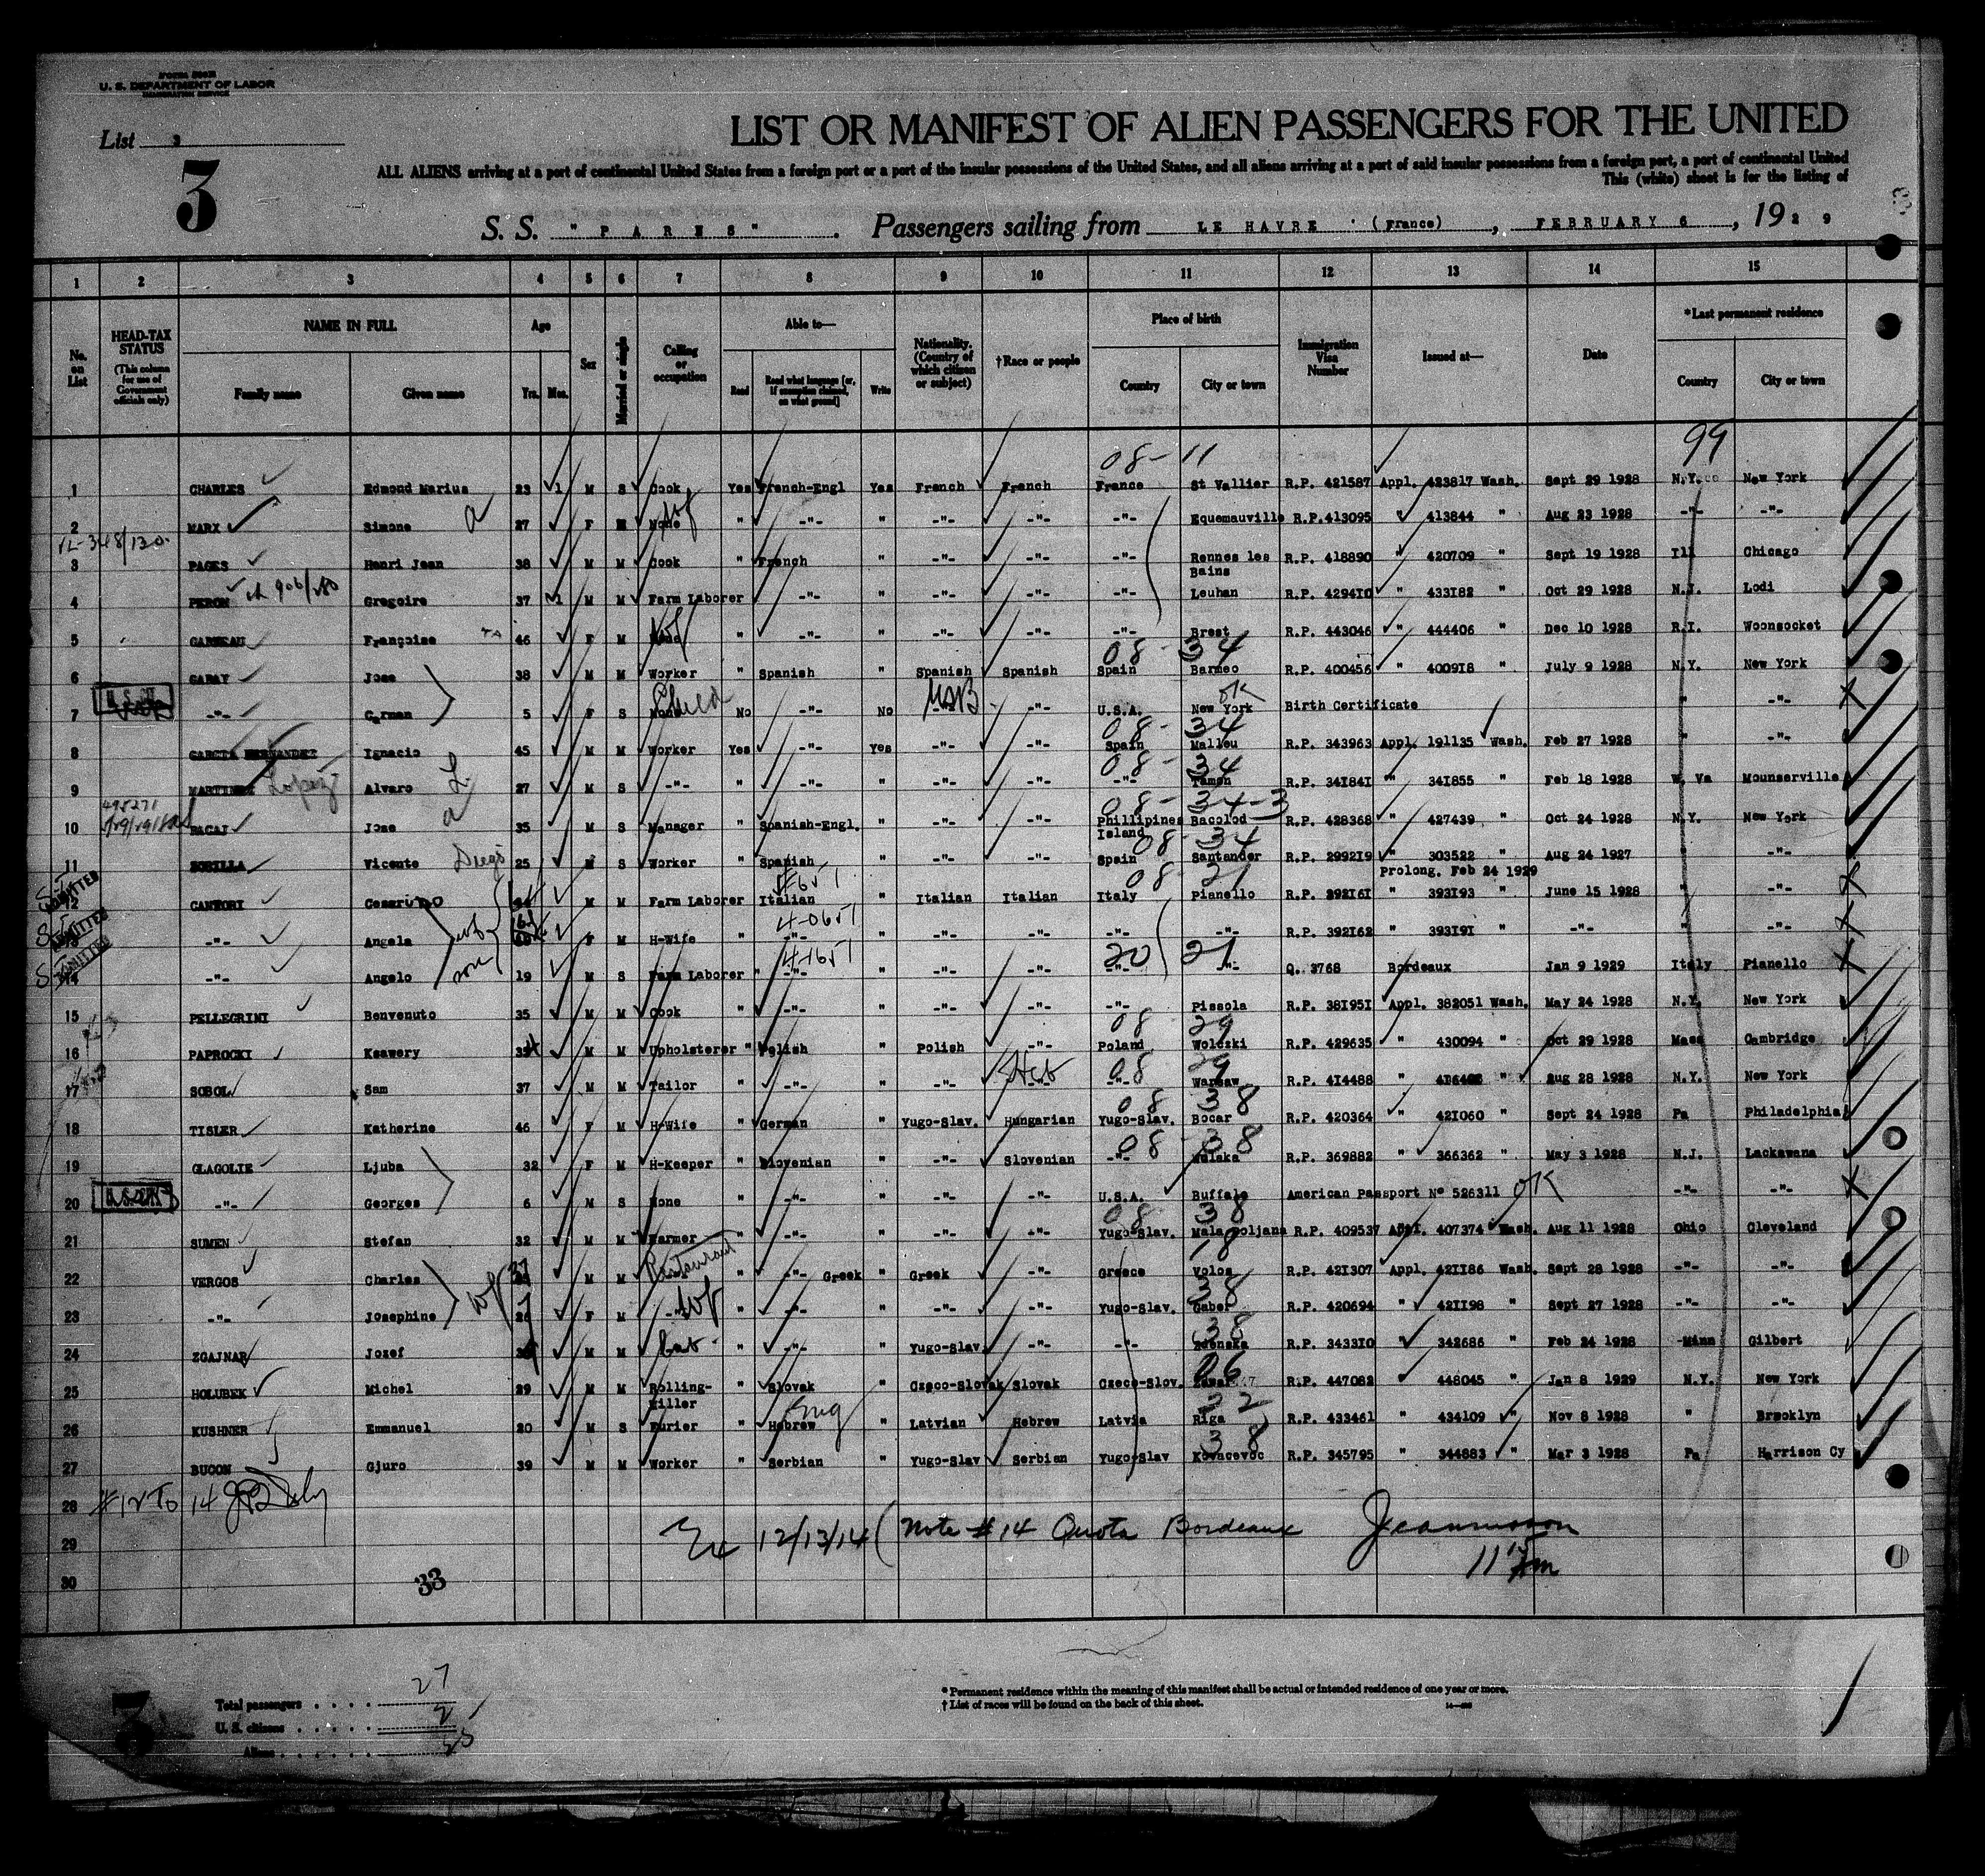 U. S. DEPARTMENT OF LABOR
IMMIGRATION SERVICE
List 3
3
LIST OR MANIFEST OF ALIEN PASSENGERS FOR THE UNITED
ALL ALIENS arriving at a port of continental United States from a foreign port or a port of the insular possessions of the United States, and all aliens arriving at a port of said insular possessions from a foreign port, a port of continental United
This (white) sheet is for the listing of
S. S. "PARIS". Passengers sailing from LE HAVRE (France), FEBRUARY 6, 1929
1 2 3 4 5 6 7 8 9 10 11 12 13 14 15
No. on List
HEAD-TAX STATUS (This column for use of Government officials only)
NAME IN FULL Family name Given name
Age Yrs. Mos.
Sex
Married or single
Calling or occupation
Able to— Read Read what language [or, if exemption claimed, on what ground] Write
Nationality. (Country of which citizen or subject)
†Race or people
Place of birth Country City or town
Immigration Visa Number
Issued at—
Date
*Last permanent residence Country City or town
08-11 99
1 CHARLES Edmond Marius 23 1 M S Cook Yes French-Engl Yes French French France St Vallier R.P. 421587 Appl. 423817 Wash. Sept 29 1928 N.Y. New York
2 MARX Simone 27 F M None wf " -"- " -"- -"- -"- Equemauville R.P.413095 " 413844 " Aug 23 1928 -"- -"-
3 PAGES Henri Jean 38 M M Cook " French " -"- -"- -"- Rennes les Bains R.P. 418890 " 420709 " Sept 19 1928 Ill Chicago
4 PERON Gregoire 37 1 M M Farm Laborer -"- " -"- -"- -"- Leuhan R.P. 429410 " 433182 " Oct 29 1928 N.J. Lodi
5 Françoise 46 F M wf " -"- " -"- -"- -"- Brest R.P. 443046 " 444406 " Dec 10 1928 R.I. Woonsocket
08-34
6 GARAY Jose 38 M M Worker " Spanish " Spanish Spanish Spain Barmeo R.P. 400456 " 400918 " July 9 1928 N.Y. New York
7 -"- Carman 5 F S None Child No -"- No USB -"- U.S.A. New York OK Birth Certificate " -"-
08-34
8 GARCIA HERNANDEZ Ignacio 45 M M Worker Yes -"- Yes -"- -"- Spain Malleu R.P. 343963 Appl. 191135 Wash. Feb 27 1928 " -"-
08-34
9 MARTINEZ Lopez Alvaro 27 M S -"- " -"- " -"- -"- -"- R.P. 341841 " 341855 " Feb 18 1928 W. Va Mounserville
08-34-3
10 PACAJ Jose 35 M S Manager " Spanish-Engl. " -"- -"- Phillipines Island Bacolod R.P. 428368 " 427439 " Oct 24 1928 N.Y. New York
08-34
11 Vicente 25 M S Worker " Spanish " -"- -"- Spain Santander R.P. 299219 " 303522 " Aug 24 1927 " -"-
Prolong. Feb 24 1929
08-21
12 CANTORI M M Farm Laborer Italian " Italian Italian Italy Pianello R.P. 392161 " 393193 " June 15 1928 " -"-
13 -"- Angela wf F M H-Wife " -"- " -"- -"- -"- -"- R.P. 392162 " 393191 " -"- " -"-
20 21
14 -"- Angelo son 19 M S Farm Laborer " -"- " -"- -"- -"- -"- Q. 3768 Bordeaux Jan 9 1929 Italy Pianello
15 PELLEGRINI Benvenuto 35 M M Cook " -"- " -"- -"- -"- Pissola R.P. 381951 Appl. 382051 Wash. May 24 1928 N.Y. New York
08 29
16 PAPROCKI Ksawery M M Upholsterer " Polish " Polish -"- Poland Wolozki R.P. 429635 " 430094 " Oct 29 1928 Mass Cambridge
08 29
17 SOBOL Sam 37 M M Tailor " -"- " -"- Heb -"- Warsaw R.P. 414488 " " Aug 28 1928 N.Y. New York
08 38
18 TISLER Katherine 46 F M H-Wife " German " Yugo-Slav. Hungarian Yugo-Slav. Bocar R.P. 420364 " 421060 " Sept 24 1928 Pa Philadelphia
08-38
19 GLAGOLIE Ljuba 32 F M H-Keeper " Slovenian " -"- Slovenian -"- R.P. 369882 " 366362 " May 3 1928 N.J. Lackawana
20 -"- Georges 6 M S None " -"- " -"- -"- U.S.A. Buffalo American Passport No 526311 OK -"- -"-
08 38
21 SUMEN Stefan 32 M M Farmer " -"- " -"- -"- Yugo-Slav. Mala Poljana R.P. 409537 Appl. 407374 Wash. Aug 11 1928 Ohio Cleveland
18
22 VERGOS Charles M M Restaurant " -"- Greek " Greek -"- Greece Volos R.P. 421307 Appl. 421186 Wash. Sept 28 1928 -"- -"-
38
23 -"- Josephine wf F M wf " -"- " -"- -"- Yugo-Slav. Gaber R.P. 420694 " 421198 " Sept 27 1928 -"- -"-
38
24 ZGAJNAR Jozef M M Lab " -"- " Yugo-Slav. -"- -"- R.P. 343310 " 342686 " Feb 24 1928 Minn Gilbert
06
25 HOLUBEK Michel 29 M M Rolling-Miller " Slovak " Czeco-Slovak Slovak Czeco-Slov. R.P. 447082 " 448045 " Jan 8 1929 N.Y. New York
22
26 KUSHNER Emmanuel 20 M S Furier " Hebrew Eng " Latvian Hebrew Latvia Riga R.P. 433461 " 434109 " Nov 8 1928 " Brooklyn
38
27 BUCON Gjuro 39 M M Worker " Serbian " Yugo-Slav Serbian Yugo-Slav Kovacevoc R.P. 345795 " 344883 " Mar 3 1928 Pa Harrison Cy
28 #12 To 14
29 12/13/14 (Note #14 Quota Bordeaux
30
33
Total passengers . . . . 27
U. S. citizens . . . . . 2
Aliens . . . . . . 25
* Permanent residence within the meaning of this manifest shall be actual or intended residence of one year or more.
† List of races will be found on the back of this sheet.
3